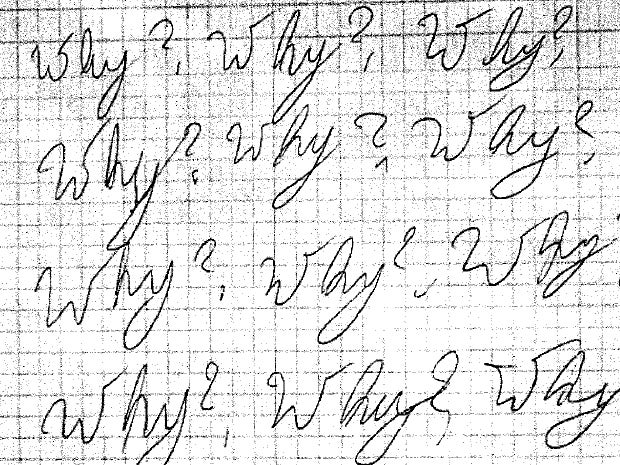 Why?, Why?, Why?
Why? Why? Why?
Why?, Why?, Why
Why?, Why?, Why